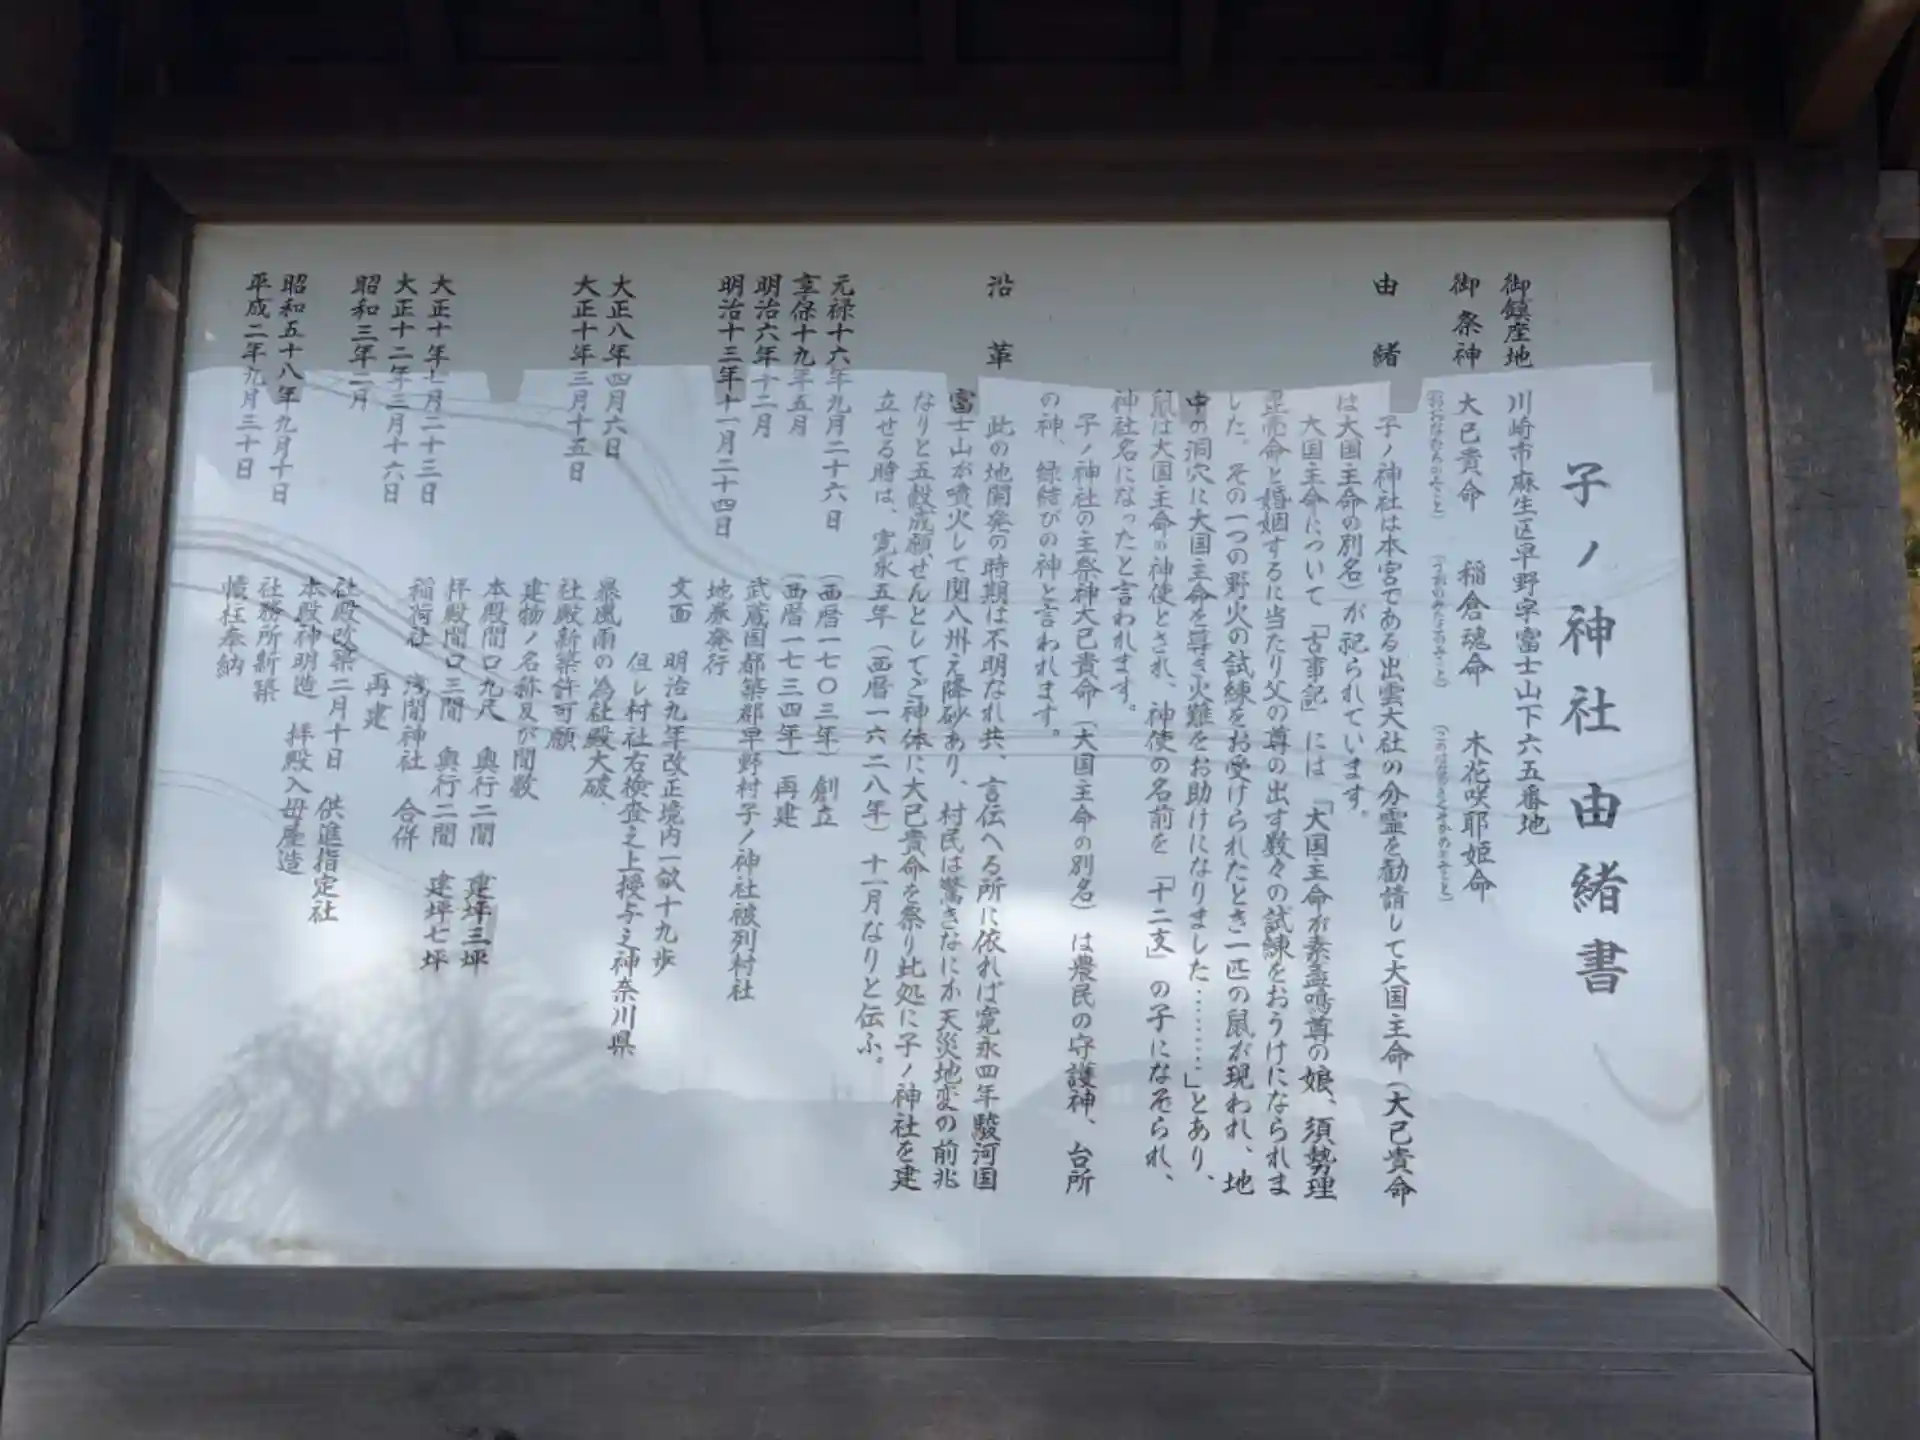 子ノ神社由緒書
御鎮座地 川崎市麻生区早野字富士山下六五番地
御祭神 大己貴命 稲倉魂命 木花咲耶姫命
(おおなむちのみこと) (うかのみたまのみこと) (このはなさくやひめのみこと)
由緒
子ノ神社は本宮である出雲大社の分霊を勧請して大国主命(大己貴命
は大国主命の別名)が祀られています。
大国主命について「古事記」には「大国主命が素盞鳴尊の娘、須勢理
毘売命と婚姻するに当たり父の尊の出す数々の試練をおうけになられま
した。その一つの野火の試練をお受けられたとき一匹の鼠が現われ、地
中の洞穴に大国主命を導き火難をお助けになりました………」とあり、
鼠は大国主命の神使とされ、神使の名前を「十二支」の子になぞられ、
神社名になったと言われます。
子ノ神社の主祭神大己貴命(大国主命の別名)は農民の守護神、台所
の神、縁結びの神と言われます。
沿革
此の地開発の時期は不明なれ共、言伝へる所に依れば寛永四年駿河国
富士山が噴火して関八州え降砂あり、村民は驚きなにか天災地変の前兆
なりと五穀成願せんとしてご神体に大己貴命を祭り此処に子ノ神社を建
立せる時は、寛永五年(西暦一六二八年)十一月なりと伝ふ。
元禄十六年九月二十六日 (西暦一七〇三年)創立
享保十九年五月 (西暦一七三四年)再建
明治六年十二月 武蔵国都築郡早野村子ノ神社被列村社
明治十三年十一月二十四日 地券発行
文面 明治九年改正境内一畝十九歩
但し村社右検査之上授与之神奈川県
大正八年四月六日 暴風雨の為社殿大破、
大正十年三月十五日 社殿新築許可願
建物ノ名称及び間数
本殿間口九尺 奥行二間 建坪三坪
拝殿間口三間 奥行二間 建坪七坪
大正十年七月二十三日 稲荷社 浅間神社 合併
大正十二年三月十六日 再建
昭和三年二月 社殿改築二月十日 供進指定社
本殿神明造 拝殿入母屋造
昭和五十八年九月十日 社務所新築
平成二年九月三十日 幟柱奉納